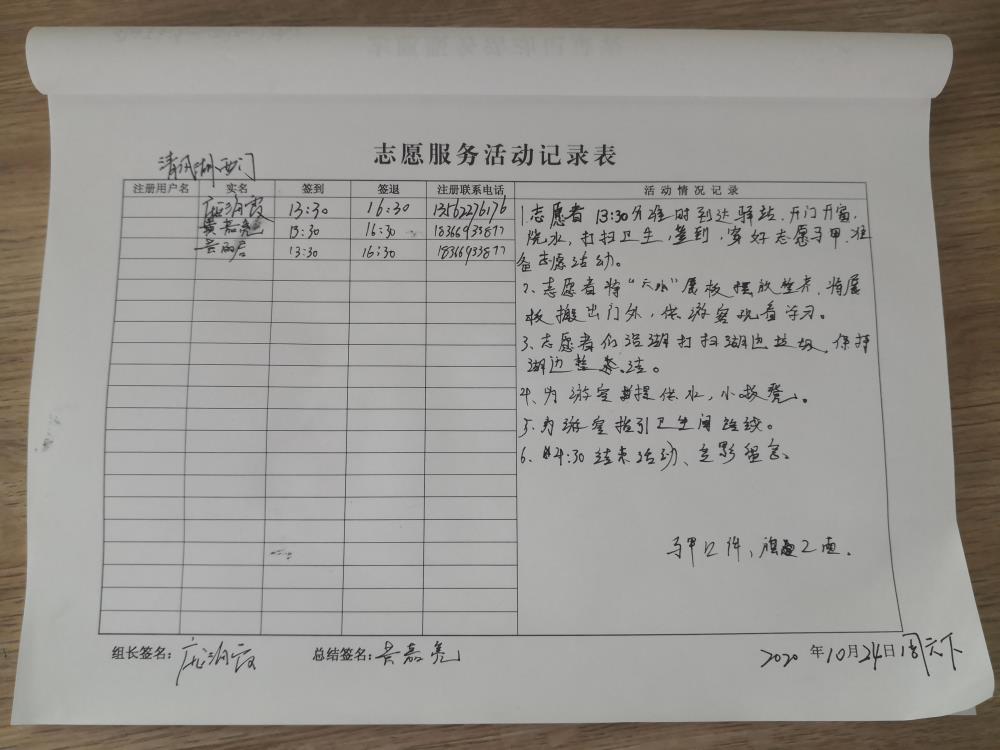 清风湖西门
志愿服务活动记录表
注册用户名 实名 签到 签退 注册联系电话 活动情况记录
庞润霞 13:30 16:30 13562276176
黄嘉尧 13:30 16:30 18366933877
13:30 16:30 18366933877
1.志愿者 13:30分准时到达驿站.开门开窗,
烧水,打扫卫生,签到,穿好志愿马甲.准
备志愿活动。
2、志愿者将"天水"展板摆放整齐.将展
板搬出门外,供游客观看学习。
3、志愿者们沿湖打扫湖边垃圾.保持
湖边整洁。
4、为游客提供水,小板凳。
5、为游客指引卫生间路线。
6、4:30结束活动、合影留念。
马甲2件,旗2面.
组长签名:庞润霞 总结签名:黄嘉尧 2020年10月24日周六下